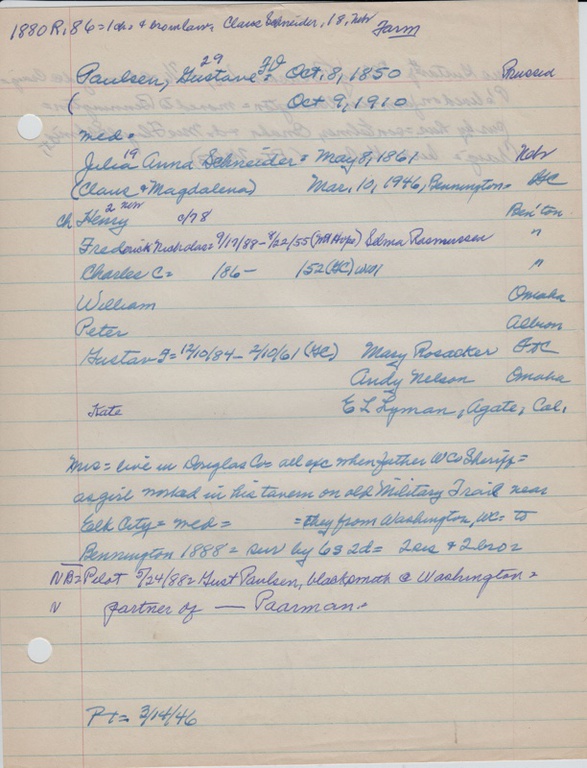 1880 R, 86 = 1 da. & broinlaw, Claus Schneider, 18, Neb
Farm
29
Paulsen, Gustave = Oct. 8, 1850 Prussia
( Oct 9, 1910
med =
19
Julia Anna Schneider = May 8, 1861 Neb
(Claus & Magdalena) Mar. 10, 1946, Bennington =
2 Neb
Ch Henry c/78 Ben'ton
Frederick Nicholas = 9/17/88 - 4/22/55 (Mt Hope) Selma Rasmussen "
Charles C = 186 - 152 (HC) WWI "
William Omaha
Peter Albion
Gustav J = 12/10/84 - 2/10/61 (HC) Mary Rosacker
Andy Nelson Omaha
Kate E L Lyman, Agate, Col.
Mrs = live in Douglas Co = all exc when father WCo Sheriff =
as girl worked in his tavern on old Military Trail near
Elk City = med = = they from Washington, WC = to
Bennington 1888 = sur by 6s 2d = 2 sis & 2 bro =
NB = Pilot 5/24/88 = Gust Paulsen, blacksmith @ Washington =
N partner of — Paarman =
Pt = 3/14/46